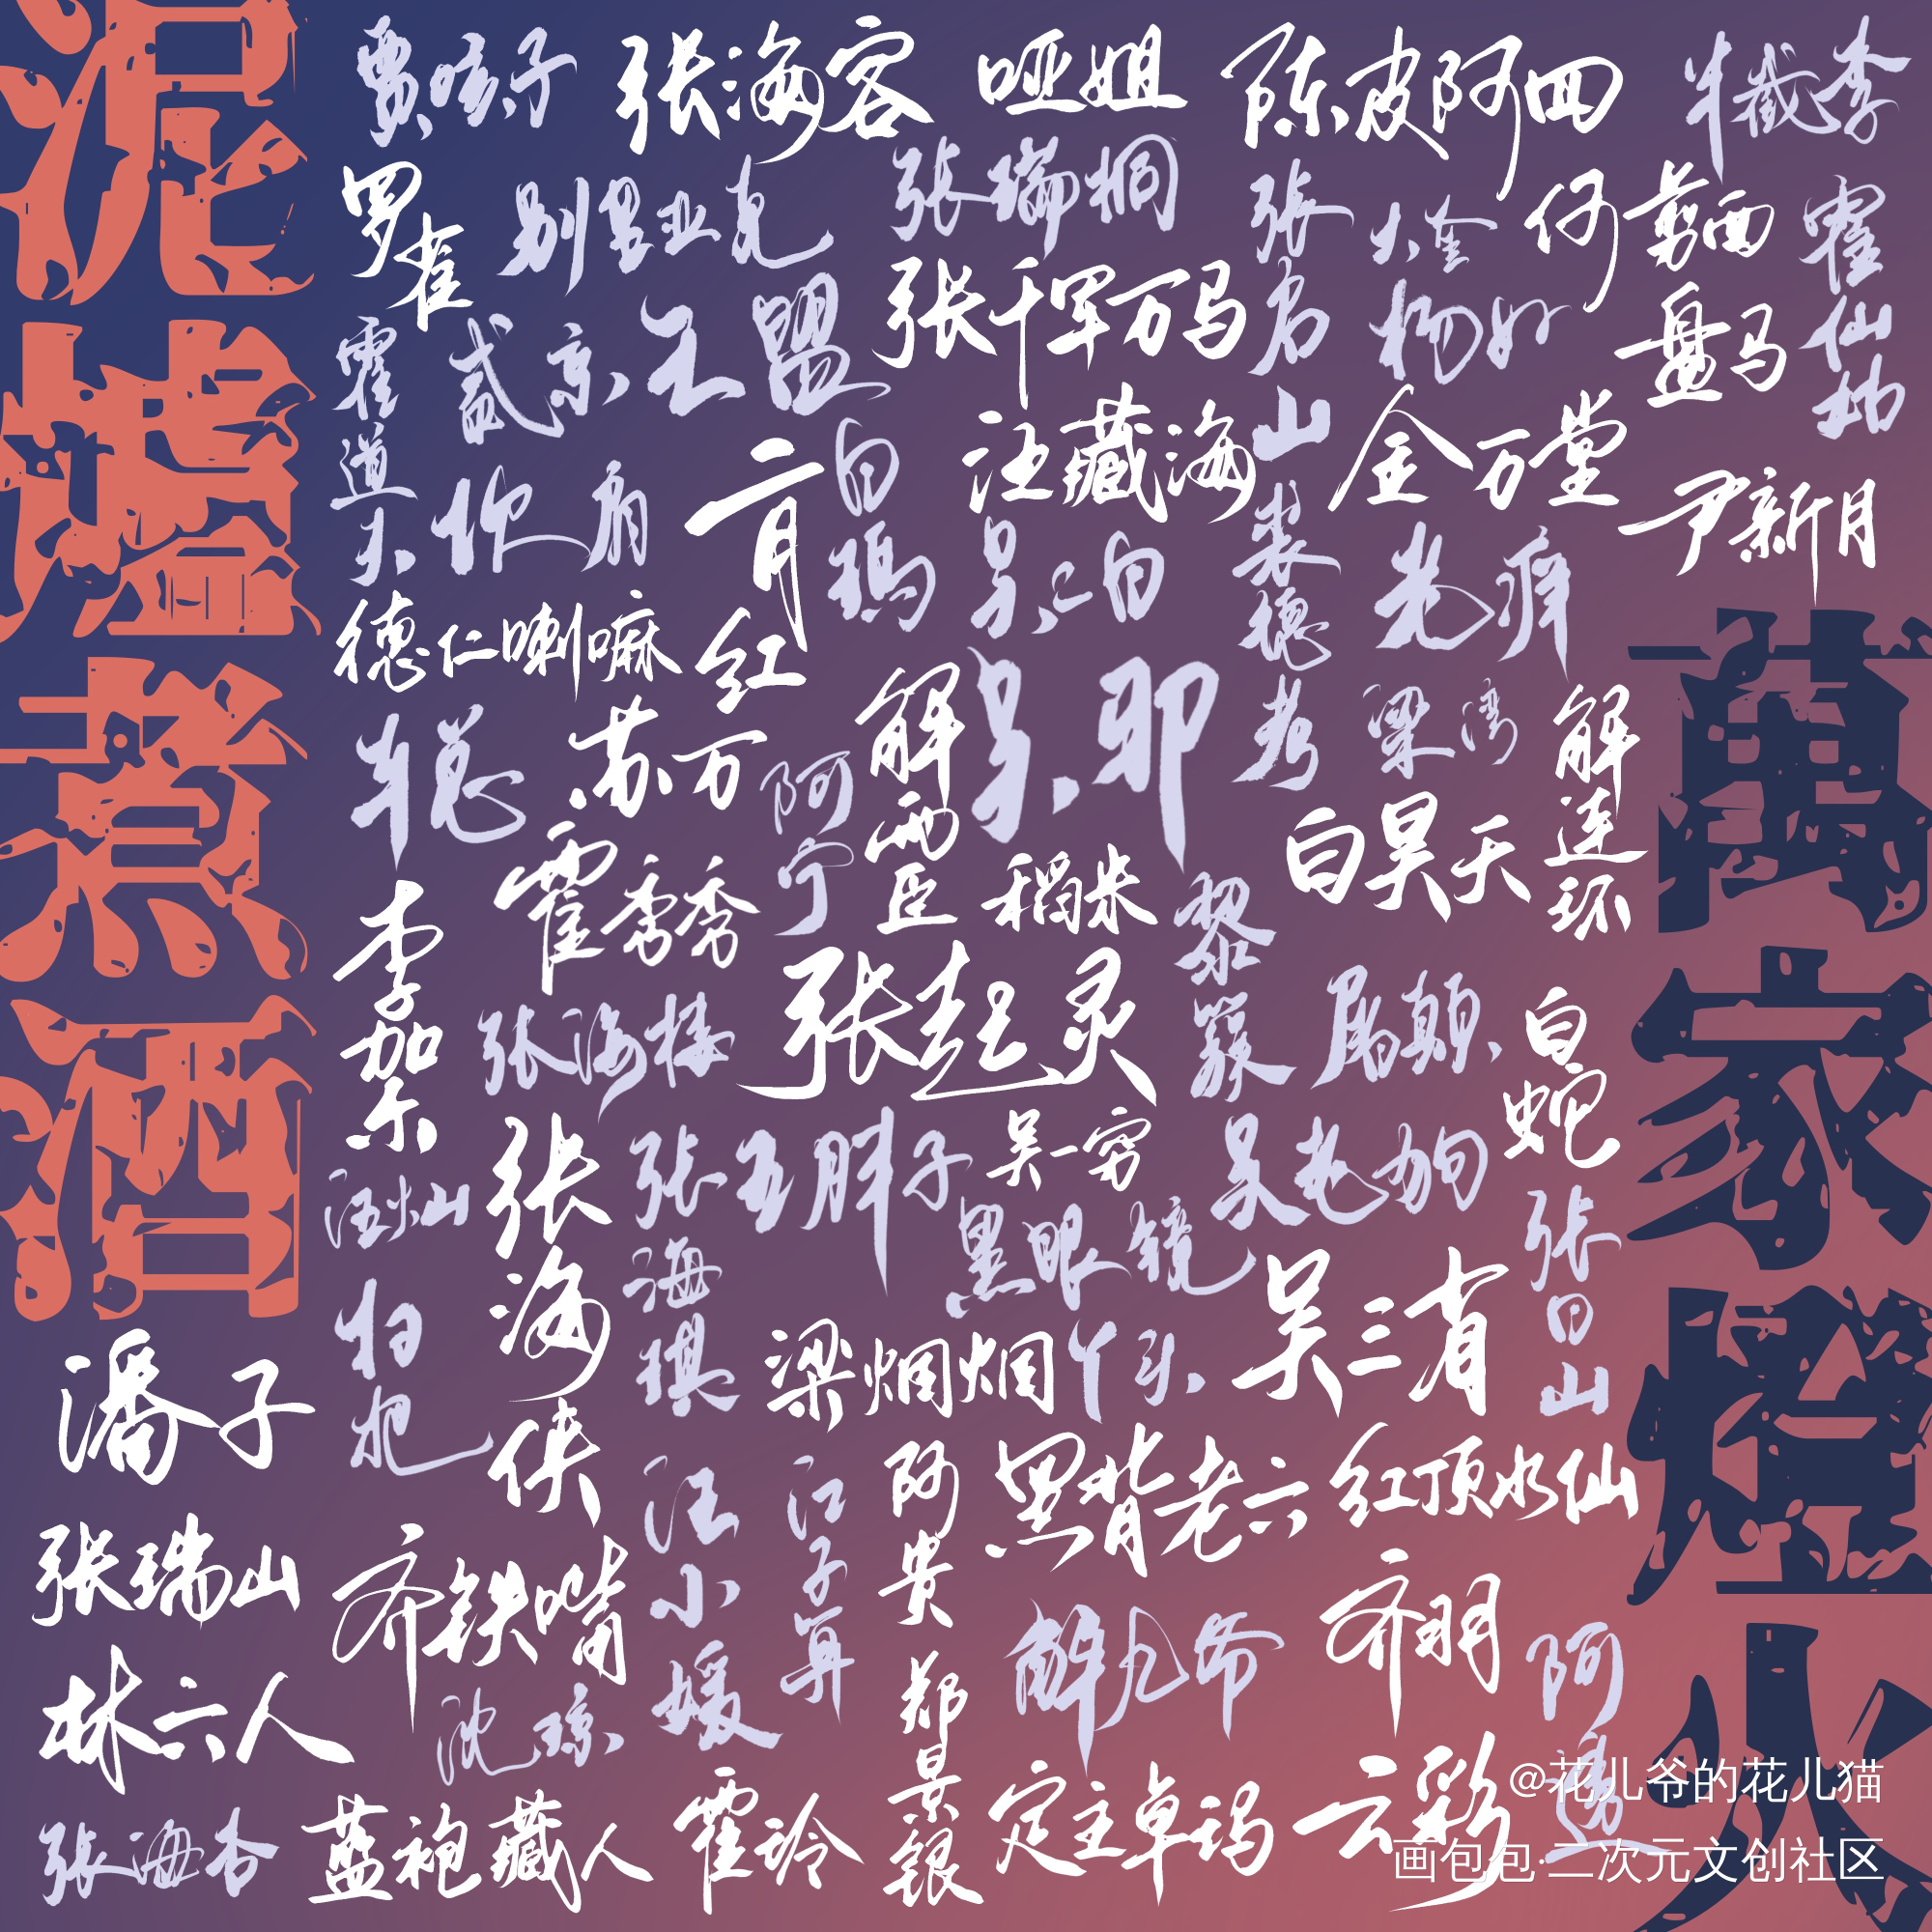 泥炉煮酒
萬家燈火
贾咳子
张海客
哑姐
陈皮阿四
半截李
罗雀
别里亚克
张瑞桐
张启山
大金
何剪面
霍仙姑
霍道夫
贰京
王盟
张千军万马
杨好
盘马
二月红
白玛
汪藏海
裘德考
金万堂
尹新月
德仁喇嘛
吴二白
老痒
车总
苏万
阿宁
解雨臣
吴邪
梁湾
解连环
李加乐
霍秀秀
稻米
黎簇
白昊天
张海楼
张起灵
屠颠
白蛇
汪灿
张海侠
张海琪
王胖子
吴一穷
吴老狗
张日山
扫把
黑眼镜
吴三省
潘子
梁烟烟
丫头
汪小媛
江子算
阿贵
黑背老六
红顶水仙
张瑞山
齐铁嘴
解九爷
齐羽
阿透
林六人
沈琼
郑景银
定主卓玛
云彩
张海杏
蓝袍藏人
霍玲
@花儿爷的花儿猫
画包包 二次元文创社区